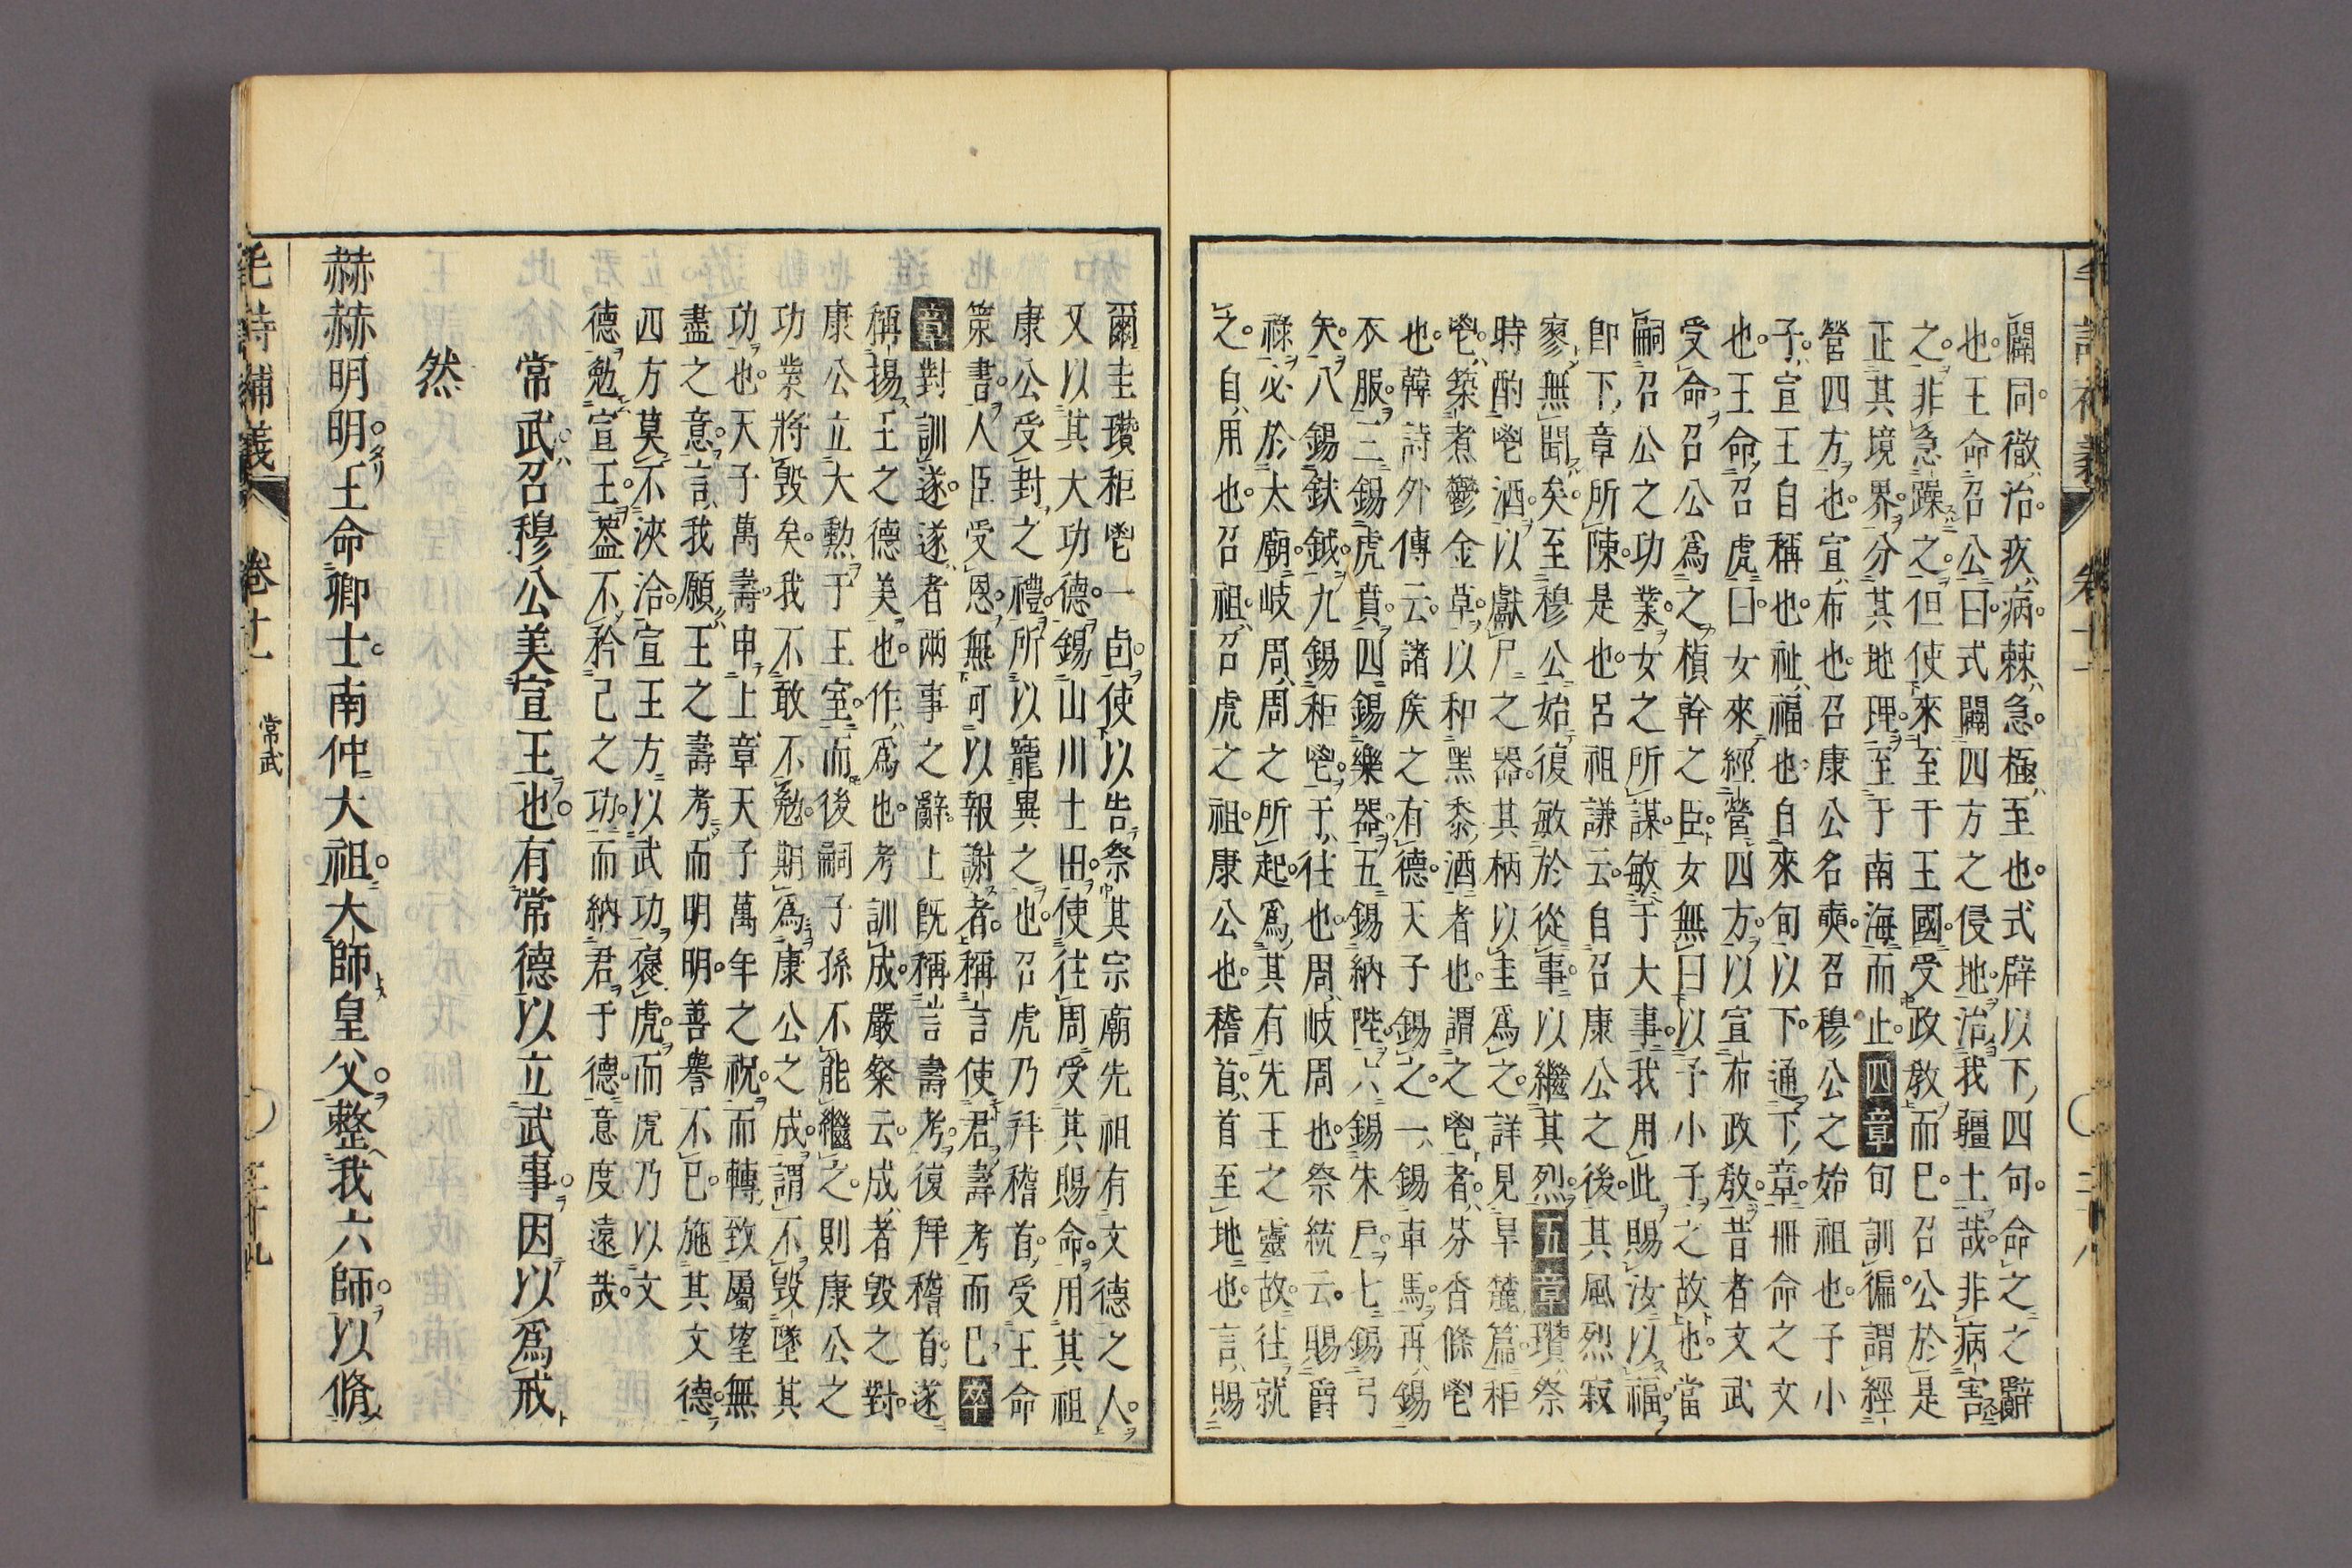 闢同徹治疚病棘急極至也式辟以下四句命之之辭
也王命召公曰式闢四方之侵地治我疆土哉非病害
之非急躁之但使來至于王國受政敎而已召公於是
正其境界分其地理至于南海而止四章旬訓徧謂經
營四方也宣布也召康公名奭召穆公之始祖也子小
子宣王自稱也祉福也自來旬以下通下章冊命之文
也王命召虎曰女來經營四方以宣布政敎昔者文武
受命召公爲之楨幹之臣女無曰以予小子之故也當
嗣召公之功業女之所謀敏于大事我用此賜汝以福
卽下章所陳是也呂祖謙云自召康公之後其風烈寂
寥無聞矣至穆公始復敏於從事以繼其烈五章瓚祭
時酌鬯酒以獻尸之器其柄以圭爲之詳見旱麓篇秬
鬯築煮鬱金草以和黑黍酒者也謂之鬯者芬香條鬯
也韓詩外傳云諸矦之有德天子錫之一錫車馬再錫
衣服三錫虎賁四錫樂器五錫納陛六錫朱戶七錫弓
矢八錫鈇鉞九錫秬鬯于往也周岐周也祭統云賜爵
祿必於太廟岐周周之所起爲其有先王之靈故往就
之自用也召祖召虎之祖康公也稽首首至地也言賜
爾圭瓚秬鬯一卣使以告祭其宗廟先祖有文德之人
又以其大功德錫山川土田使往周受其賜命用其祖
康公受封之禮所以寵異之也召虎乃拜稽首受王命
策書人臣受恩無可以報謝者稱言使君壽考而已卒
章對訓遂遂者兩事之辭上旣稱言壽考復拜稽首遂
稱揚王之德美也作爲也考訓成嚴粲云成者毀之對
康公立大勳于王室而後嗣子孫不能繼之則康公之
功業將毀矣我不敢不勉期爲康公之成謂不毀墜其
功也天子萬壽申上章天子萬年之祝而轉致屬望無
盡之意言我願王之壽考而明明善譽不已施其文德
四方莫不浹洽宣王方以武功褒虎而虎乃以文
德勉宣王蓋不矜己之功而納君于德意度遠哉
常武召穆公美宣王也有常德以立武事因以爲戒
然
赫赫明明王命卿士南仲大祖大師皇父整我六師以脩
毛詩補義 卷十一 常武